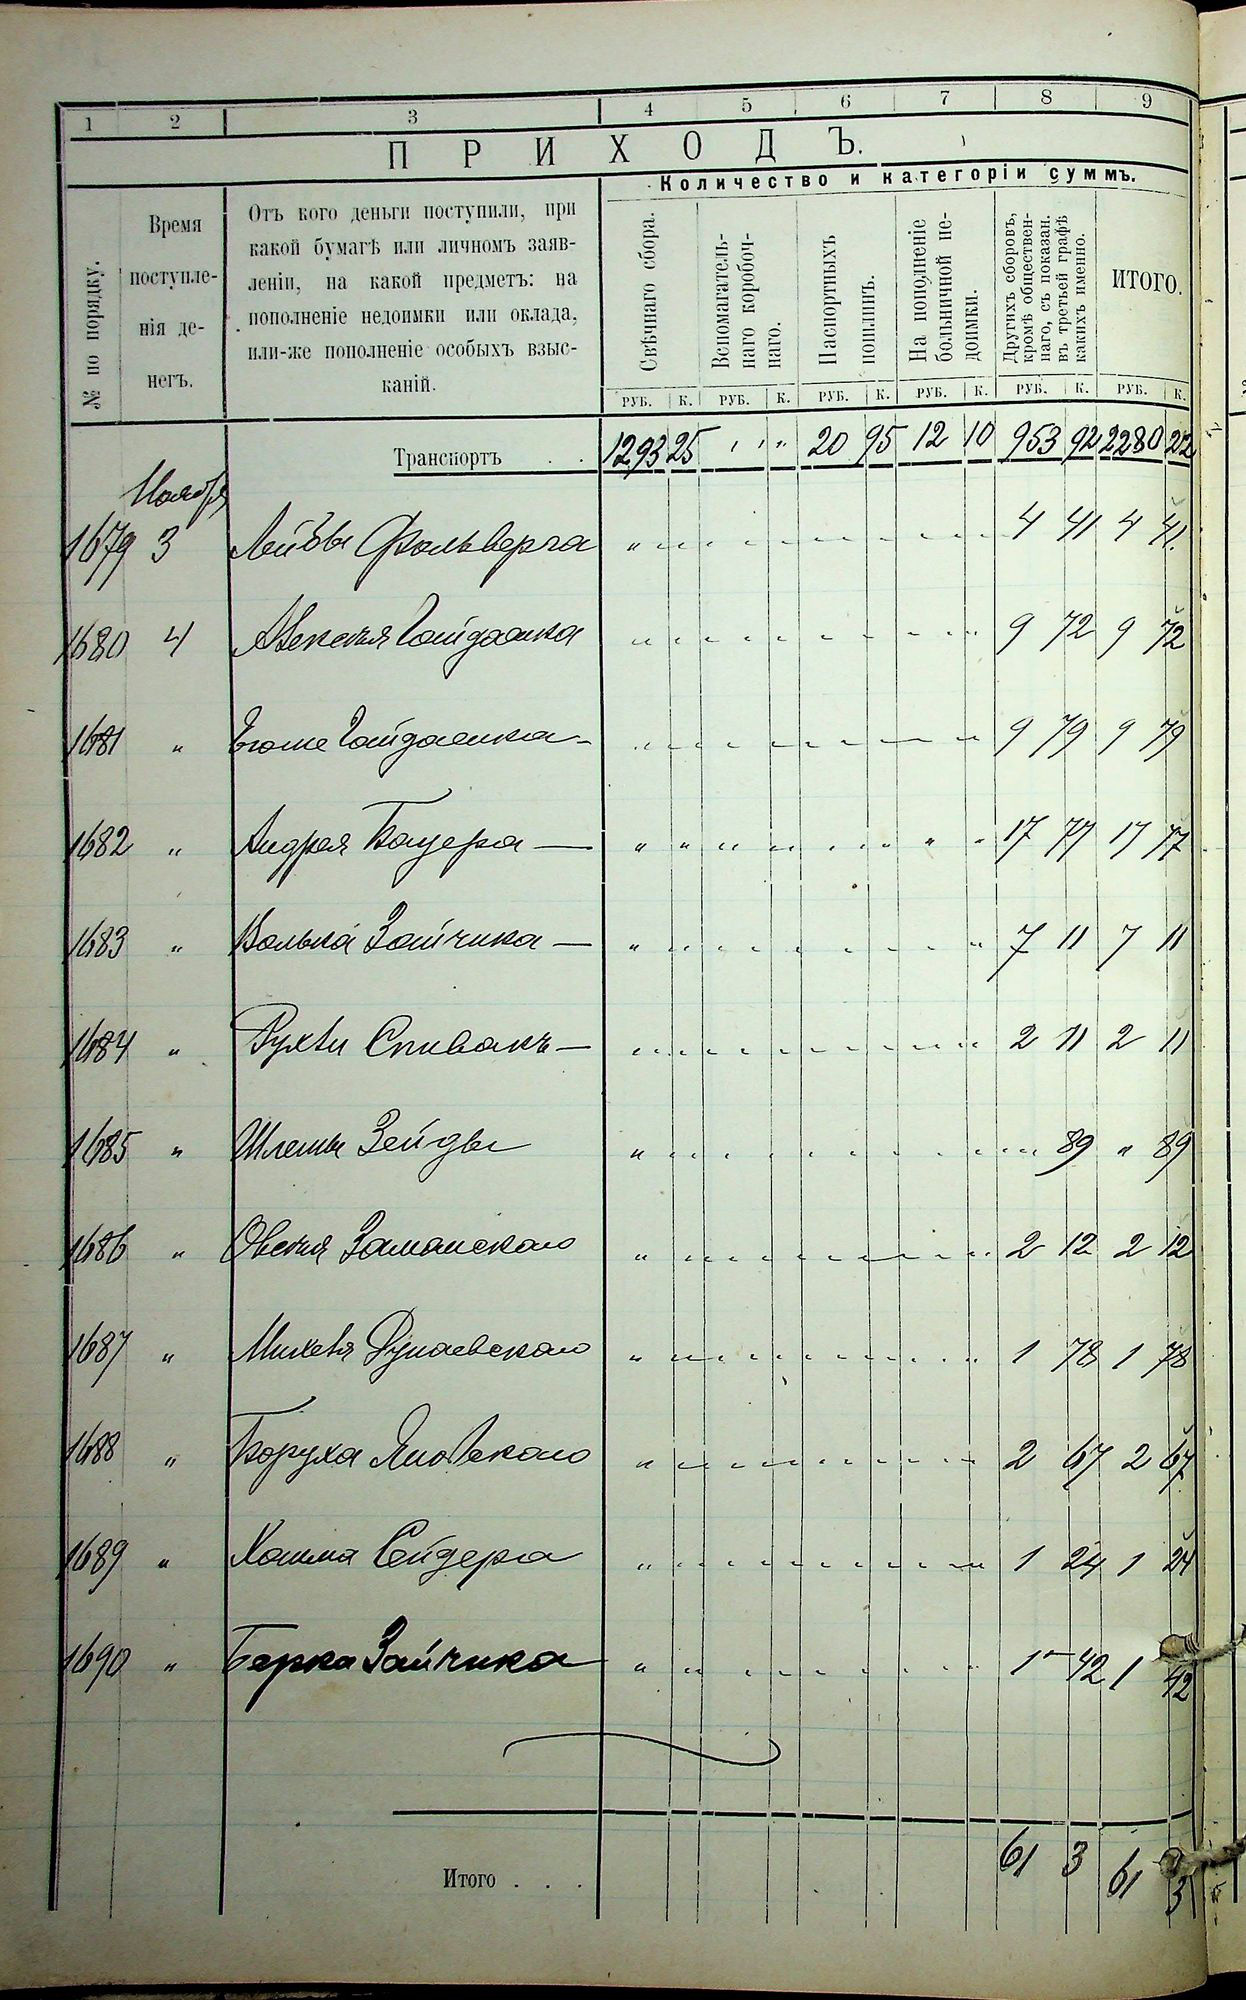 1 2 3 4 5 6 7 8 9
ПРИХОДЪ.
Количество и категоріи суммъ.
№ по порядку.
Время
поступле-
нія де-
негъ.
Отъ кого деньги поступили, при
какой бумагѣ или личномъ заяв-
леніи, на какой предметъ: на
пополненіе недоимки или оклада,
или-же пополненіе особыхъ взыс-
каній.
Свѣчнаго сбора.
Вспомагатель-
наго коробоч-
наго.
Паспортныхъ
пошлинъ.
На пополненіе
больничной не-
доимки.
Другихъ сборовъ,
кромѣ обществен-
наго, съ показан.
въ третьей графѣ
какихъ именно.
ИТОГО.
РУБ. К. РУБ. К. РУБ. К. РУБ. К. РУБ. К. РУБ. К.
Транспортъ . . 1293 25 " " 20 95 12 10 953 92 2280 22
Ноября
1679 3 Лейбы Фольверга 4 41 4 41
1680 4 Алексѣя Гайдаенка 9 72 9 72
1681 " Гайдаенка 9 79 9 79
1682 " Андрея Бауера 17 77 17 77
1683 " Волька Зайчика 7 11 7 11
1684 " Рухли Спивакъ 2 11 2 11
1685 " Шлемы Зейды " 89 " 89
1686 " Овсея Заманскаго 2 12 2 12
1687 " Михеля Дунаевскаго 1 78 1 78
1688 " Боруха Яновскаго 2 67 2 67
1689 " Хаима Сейдера 1 24 1 24
1690 " Берка Зайчика 1 42 1 42
Итого . . . 61 3 61 3